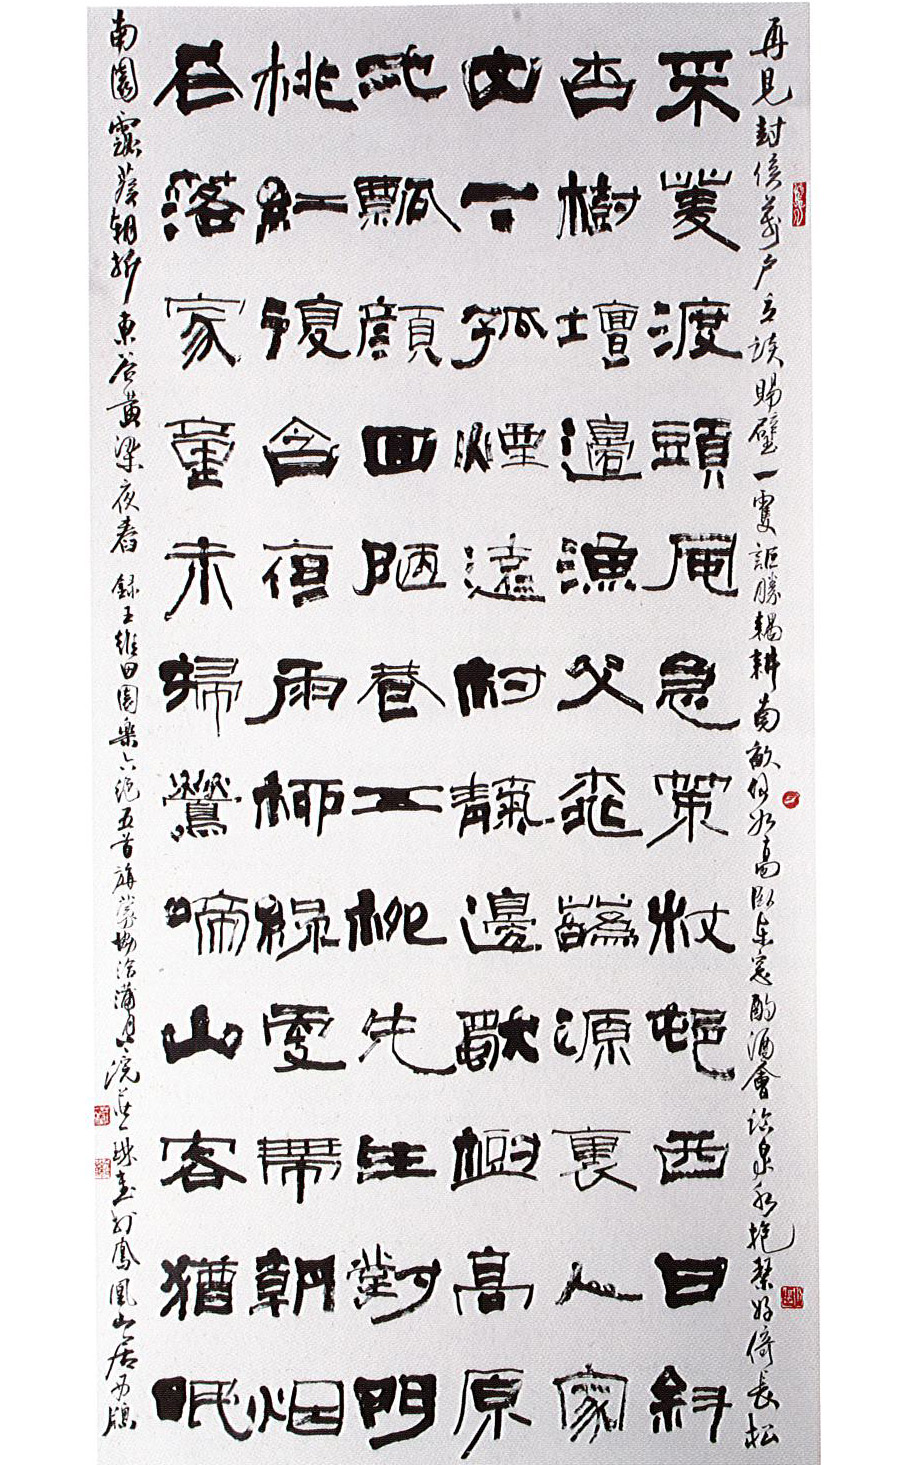 再見封侯萬户立談賜璧一雙詎勝耦耕南畝何如高臥東窓酌酒會臨泉水抱琴好倚長松
采菱渡頭風急策杖邨西日斜
杏樹壇邊漁父桃蘤源裏人家
山下孤煙遠村靝邊獨樹高原
一瓢顏回陋巷五柳先生對門
桃紅復含宿雨柳綠更帶朝烟
花落家童未掃鶯啼山客猶眠
南園露葵朝折東谷黃粱夜舂 録王維田園樂六絶五首旃蒙協洽蒲月上浣一珠書於鳳凰山居西牕